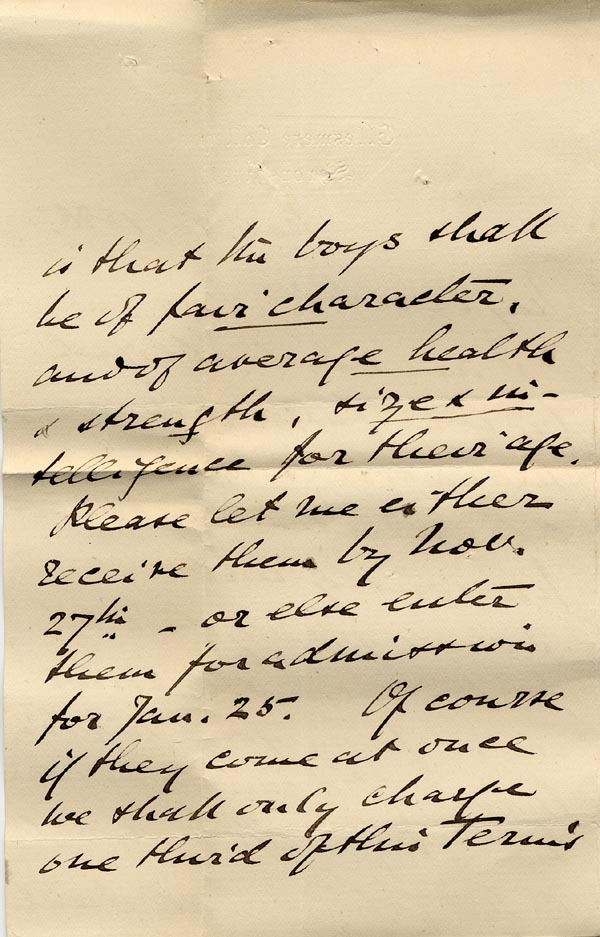 is that the boys shall
be of fair character,
and of average health
& strength, size & in-
telligence for their age.
Please let me either
receive them by Nov.
27th - or else enter
them for admission
for Jan. 25. Of course
if they come at once
we shall only charge
one third of this Term's